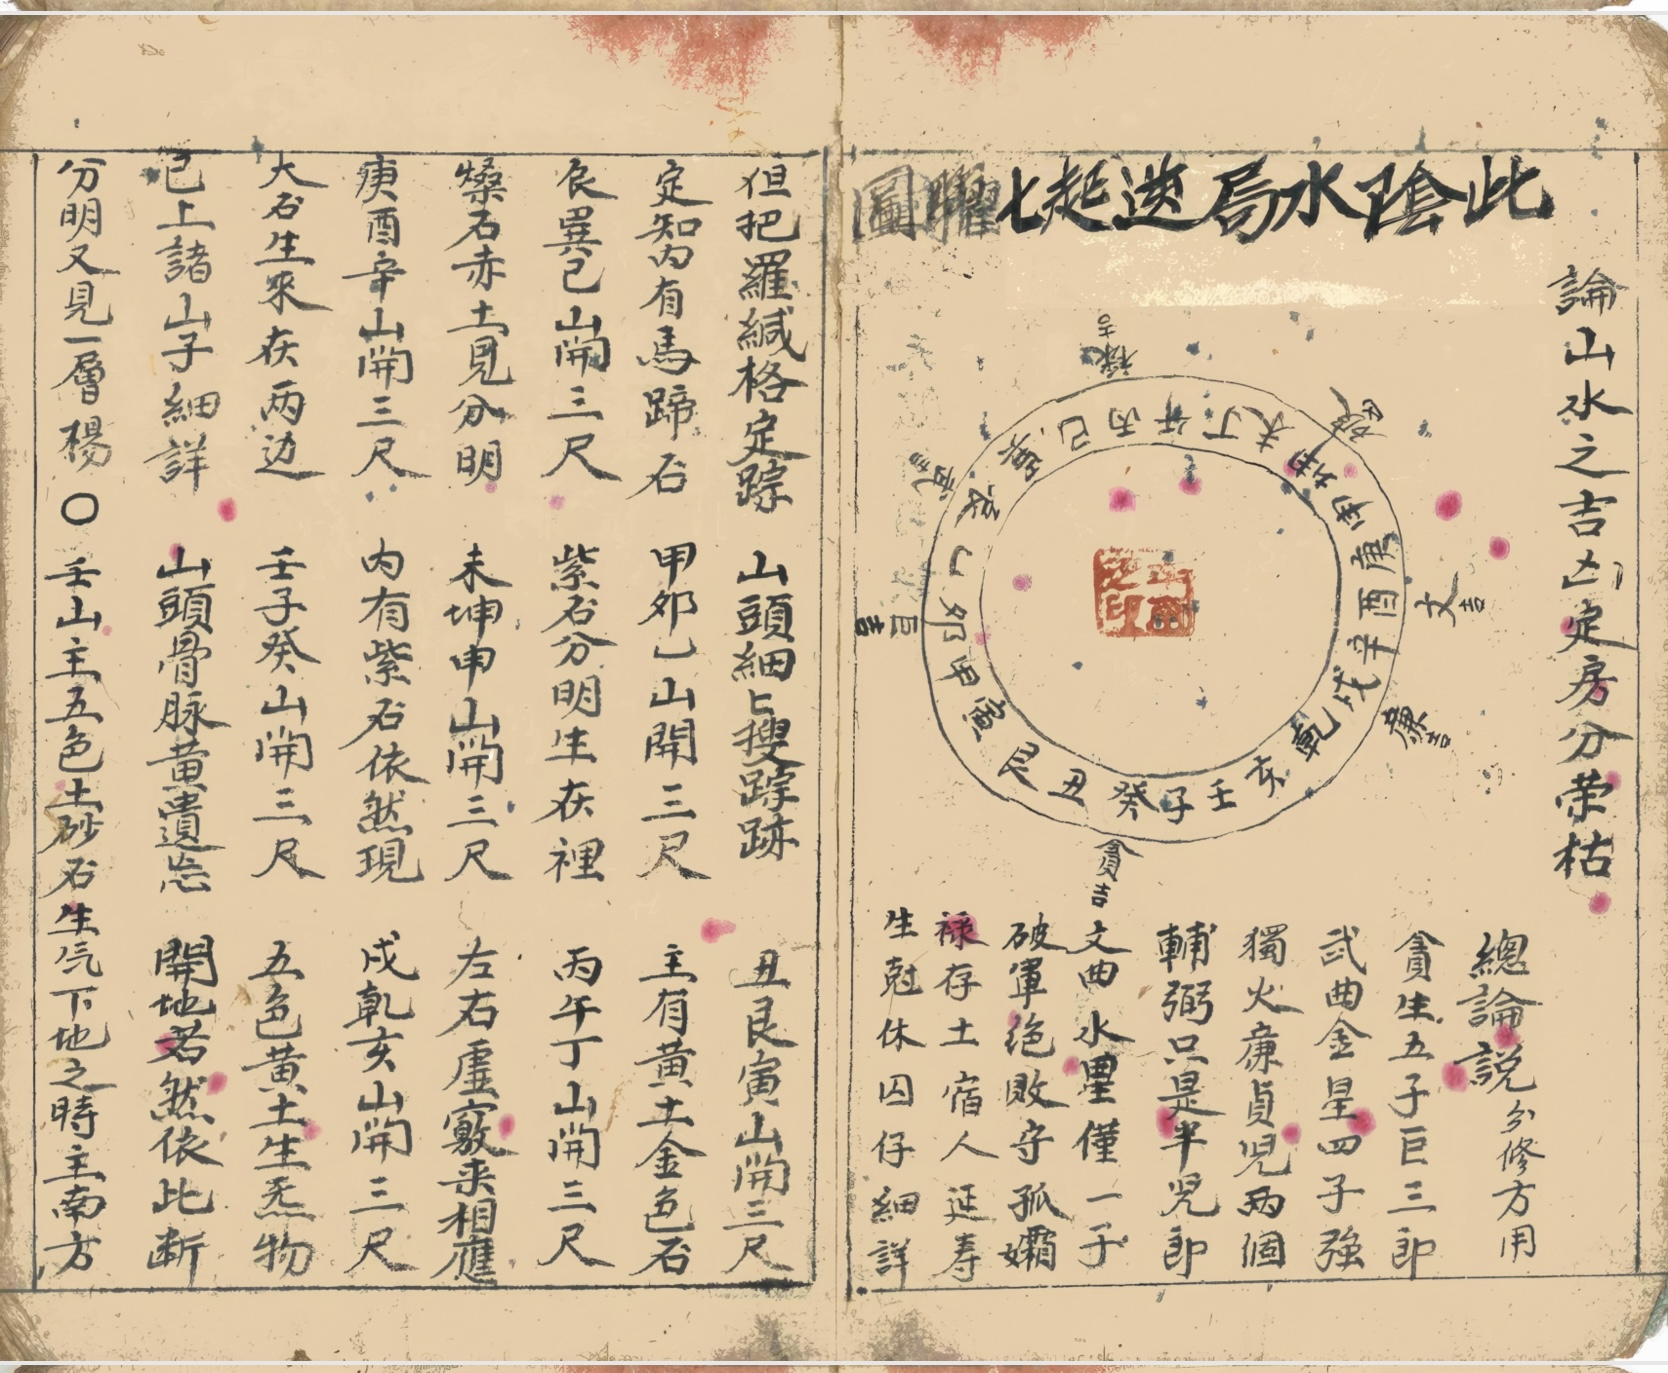 此陰水局迭起七曜圖
論山水之吉凶定房分荣枯
祿吉
破凶
文吉
廉吉
貪吉
巨吉
壬子癸丑艮寅甲卯乙辰巽巳丙午丁未坤申庚酉辛戌乾亥
總論説分修方用
貪生五子巨三郎
武曲金星四子強
獨火廉貞児両個
輔弼只是半児郎
文曲水星僅一子
破軍绝敗守孤孀
祿存土宿人延寿
生尅休囚仔細詳
但把羅緘格定踪 山頭細上搜踪跡 丑艮寅山開三尺
定知内有馬蹄石 甲卯乙山開三尺 主有黄土金色石
辰巽巳山開三尺 紫石分明生在裡 丙午丁山開三尺
燥石赤土見分明 未坤申山開三尺 左右虛竅来相應
庚酉辛山開三尺 内有紫石依然現 戌乾亥山開三尺
大石生來在两边 壬子癸山開三尺 五色黄土生炁物
已上諸山子細詳 山頭骨脉莫遺忘 開地若然依此断
分明又見一層楊〇壬山主五色土砂石生气下地之時主南方